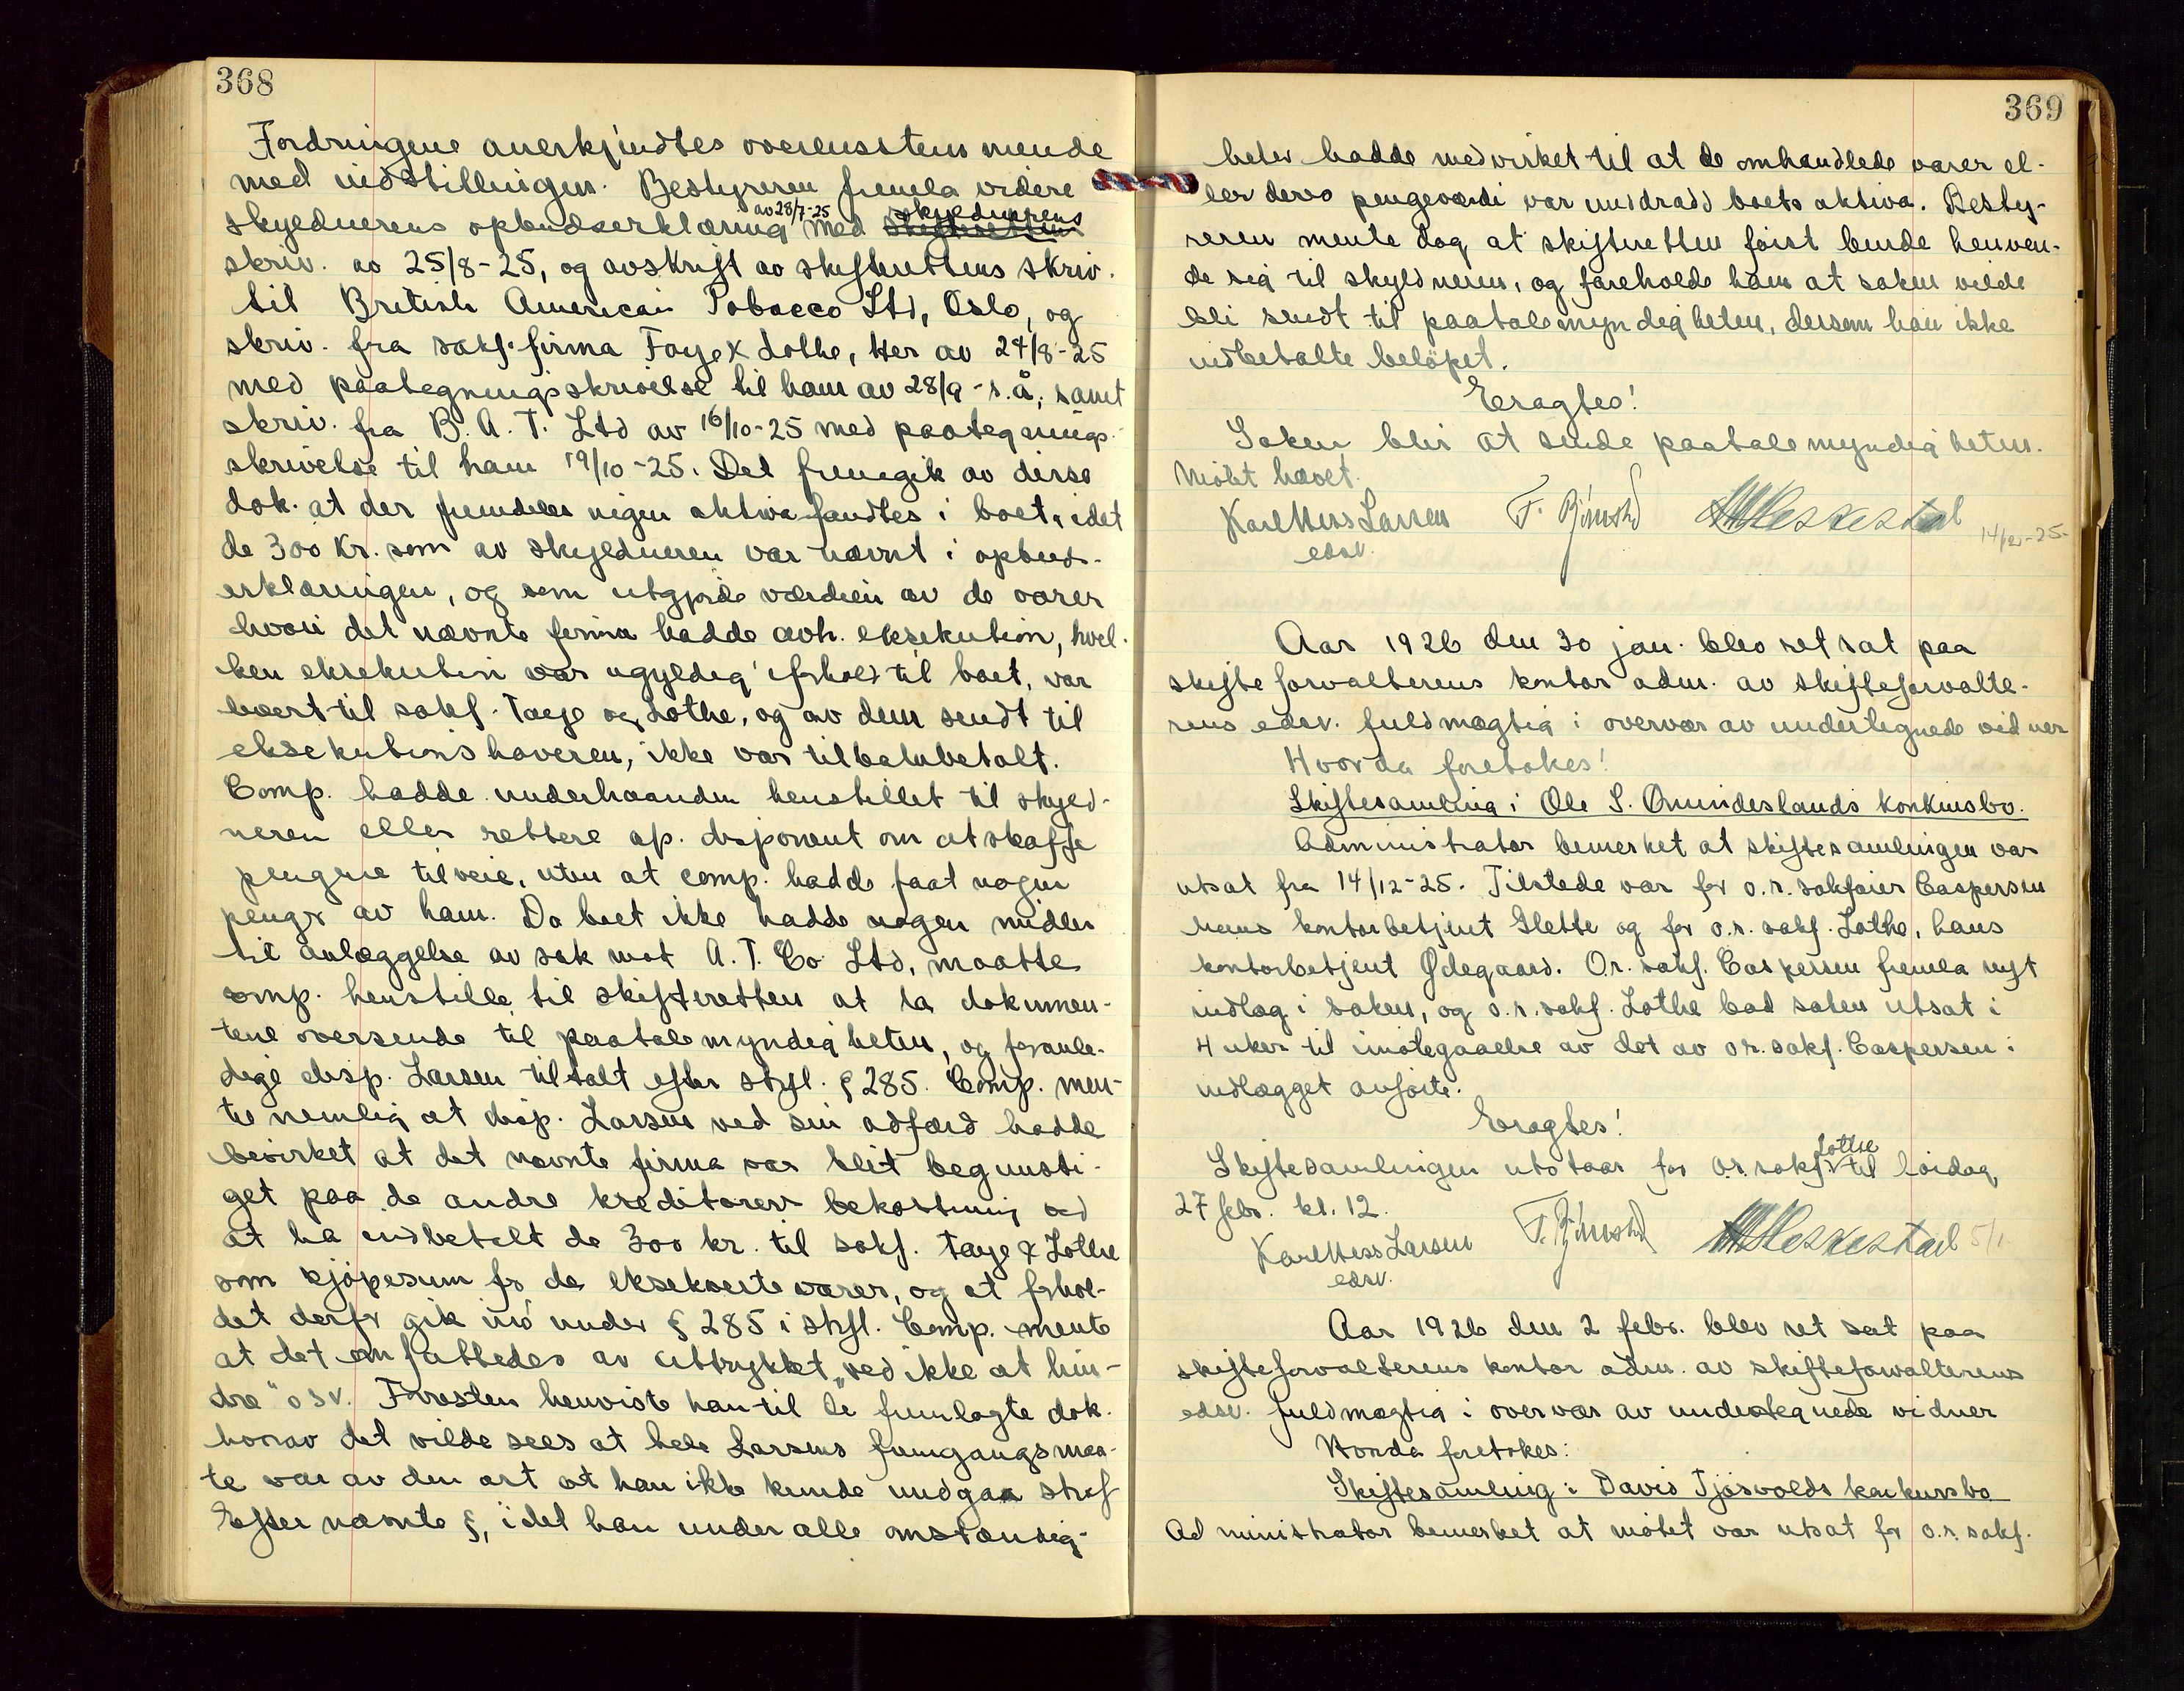 368
Fordringene anerkjendtes overensstemmende
med indstillingen. Bestyreren fremla videre
skyldnerens opbudserklæring av 28/7-25 med skyldnerens
skriv. av 25/8-25, og avskrift av skifterettens skriv.
til British American Tobacco Ltd, Oslo, og
skriv. fra sakf. firma Faye & Lothe, her av 24/8-25
med paategningsskrivelse til ham av 28/9 - s.å, samt
skriv. fra B. A. T. Ltd av 16/10-25 med paategnings-
skrivelse til ham 19/10-25. Det fremgik av disse
dok. at der fremdeles ingen aktiva fandtes i boet, idet
de 300 Kr. som av skyldneren var nævnt i opbuds-
erklæringen, og som utgjorde værdien av de varer
hvori det nævnte firma hadde avh. eksekution, hvil-
ken eksekution var ugyldig i forhold til boet, var
bært til sakf. Faye og Lothe, og av dem sendt til
eksekutionshaveren, ikke var tilbakebetalt.
Comp. hadde underhaanden henstillet til skyld-
neren eller rettere sp. disponent om at skaffe
pengene tilveie, uten at comp. hadde faat nogen
penger av ham. Da boet ikke hadde nogen midler
til anlæggelse av sak mot A. T. Co Ltd, maatte
comp. henstille til skifteretten at la dokumen-
tene oversende til paatalemyndigheten, og foranle-
dige disp. Larsen tiltalt efter strfl. § 285. Comp. men-
te nemlig at disp. Larsen ved sin adfærd hadde
bevirket at det nævnte firma var blit begunsti-
get paa de andre kreditorers bekostning ved
at ha indbetalt de 300 kr. til sakf. Faye & Lothe
som kjøpesum for de eksekverte varer, og at forhol-
det derfor gik ind under § 285 i strfl. Comp. mente
at det omfattedes av uttrykket „ved ikke at hin-
dre" osv. Forresten henviste han til de fremlagte dok.
hvorav det vilde sees at hele Larsens fremgangsmaa-
te var av den art at han ikke kunde undgaa straf
efter nævnte §, idet han under alle omstændig-
369
heter hadde medvirket til at de omhandlede varer el-
ler deres pengeværdi var unddradd boets aktiva. Besty-
reren mente dog at skifteretten først burde henven-
de sig til skyldneren, og foreholde ham at saken vilde
bli sendt til paatalemyndigheten, dersom han ikke
indbetalte beløpet.
Eragtes!
Saken blir at sende paatalemyndigheten.
Møtet hævet.
Karl Hess Larsen F. Bjørnstad Heskestad
edsv. 14/12-25-
Aar 1926 den 30 jan. blev ret sat paa
skifteforvalterens kontor adm. av skifteforvalte-
rens edsv. fuldmægtig i overvær av undertegnede vidner
Hvorda foretokes!
Skiftesamling i Ole S. Omundslands konkursbo.
Administrator bemerket at skiftesamlingen var
utsat fra 14/12-25. Tilstede var for o.r. sakfører Caspersen
hans kontorbetjent Slette og for o.r. sakf. Lothe, hans
kontorbetjent Ødegaard. O.r. sakf. Caspersen fremla nyt
indlæg i saken, og o.r. sakf. Lothe bad saken utsat i
4 uker til imøtegaaelse av det av o.r. sakf. Caspersen i
indlægget anførte.
Eragtes!
Skiftesamlingen utstaar for o.r. sakf. Lothe til lørdag
27 febr. kl. 12.
Karl Hess Larsen F. Bjørnstad Heskestad 5/1
edsv.
Aar 1926 den 2 febr. blev ret sat paa
skifteforvalterens kontor adm. av skifteforvalterens
edsv. fuldmægtig i overvær av undertegnede vidner
Hvorda foretokes:
Skiftesamling i David Tjøsvolds konkursbo
Administrator bemerket at møtet var utsat for o.r. sakf.